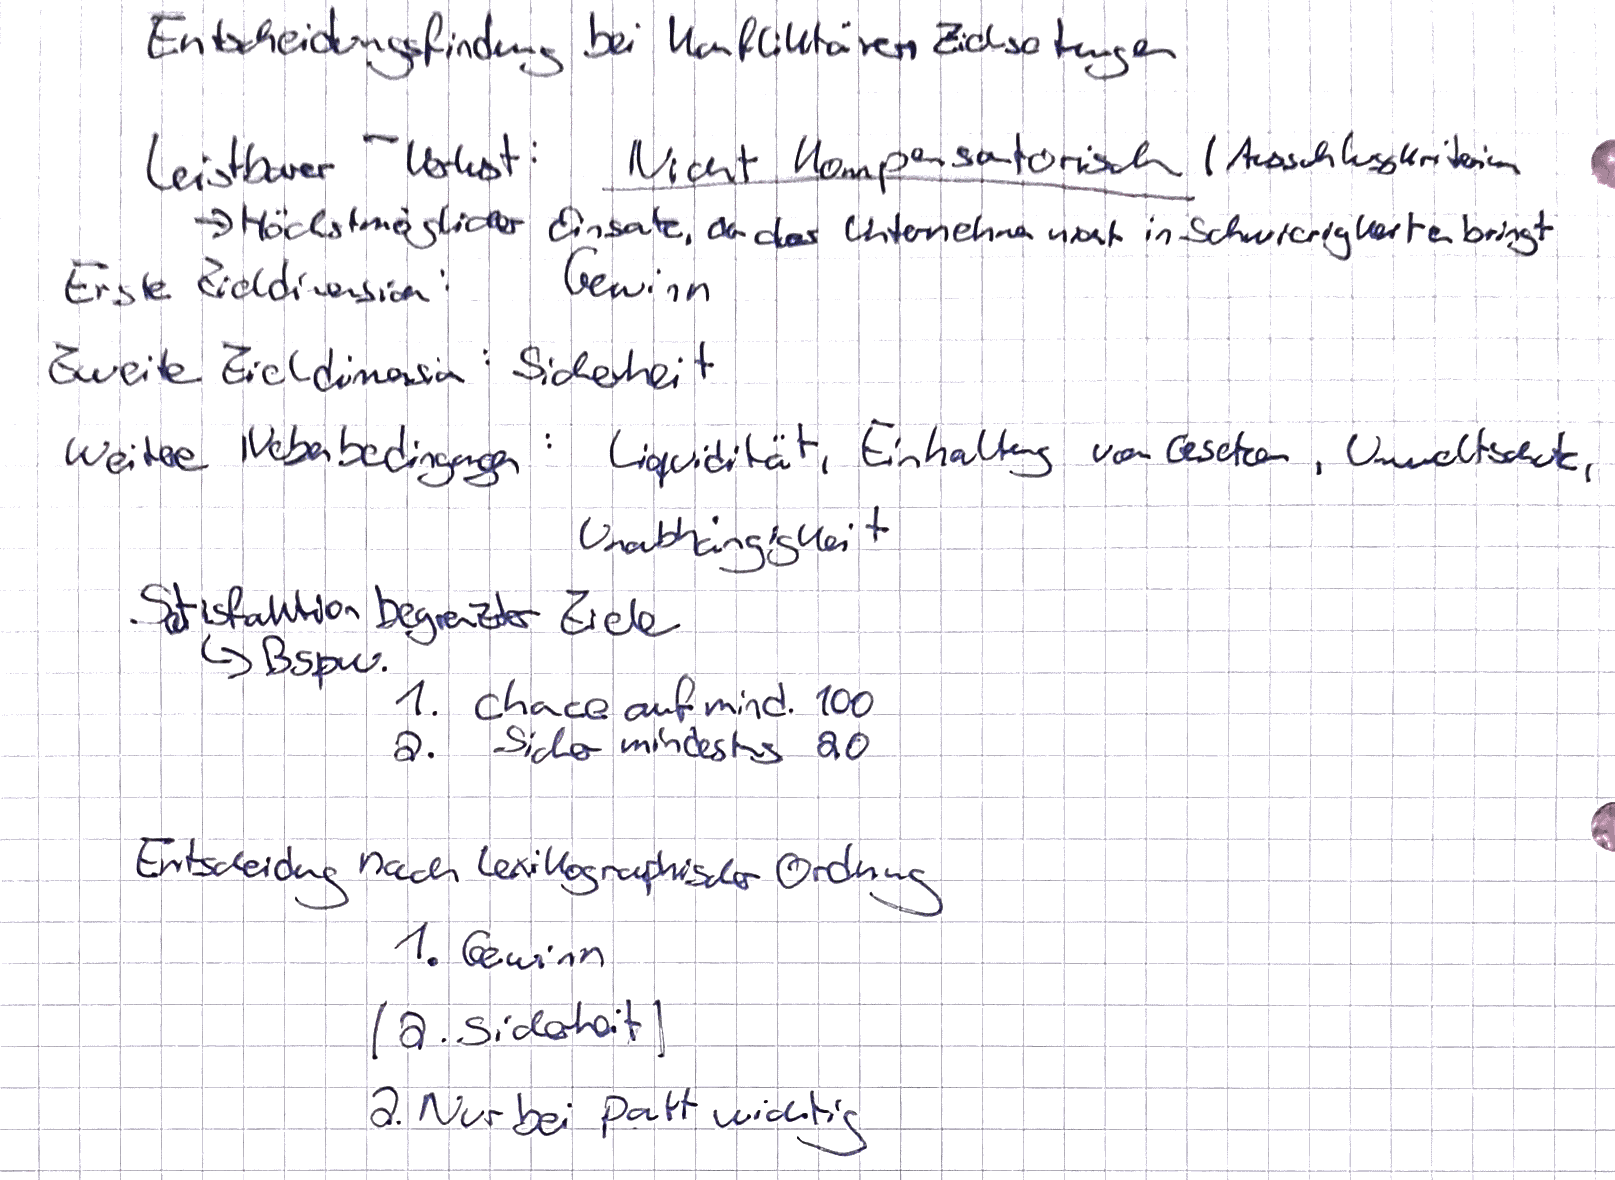 Entscheidungsfindung bei Konfliktären Zielsetungen
Leistbarer Verlust: Nicht Kompensatorisch / Ausschlusskriterium
→ Höchstmöglicher Einsatz, der das Unternehmen nicht in Schwierigkeiten bringt
Erste Zieldimension: Gewinn
Zweite Zieldimension: Sicherheit
Weitere Nebenbedingungen: Liquidität, Einhaltung von Gesetzen, Umweltschutz,
Unabhängigkeit
Satisfaktion begrenzter Ziele
↳ Bspw.
1. Chace auf mind. 100
2. Sicher mindestens 20
Entscheidung nach Lexikographischer Ordnung
1. Gewinn
[2. Sicherheit]
2. Nur bei Patt wichtig